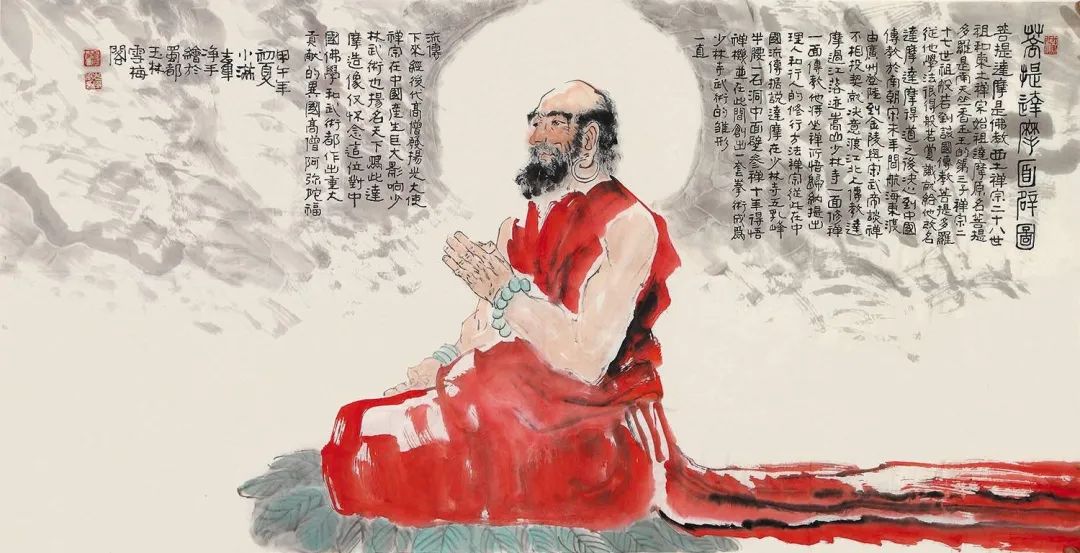 菩提達摩面壁圖
菩提達摩是佛教西土禪宗二十八世
祖和東土禪宗始祖達摩原名菩提
多羅是南天竺香玉王的第三子禪宗二
十七世祖般若到該國傳教菩提多羅
從他學法很得般若賞識故給他改名
達摩達摩得道之後決心到中國
傳教於南朝宋末年間航海東渡
由廣州登陸到金陵與宋武帝談禪
不相投契就決意渡江北上傳教達
摩過江北洛嵩山少林寺一面修禪
一面傳教他將坐禪行悟歸納提出
理入和行入的修行方法禪宗從此在中
國流傳據說達摩在少林寺五乳峰
半腰一石洞中面壁參禪十年得悟
禪機並在此間創出一套拳術成爲
少林寺武術的雛形
一直
流傳
下來經後代高僧發揚光大使
禪宗在中國產生巨大影響少
林武術也揚名天下爲此達
摩造像僅懷念這位對中
國佛學和武術都作出重大
貢獻的異國高僧阿彌陀福
甲午年
初夏
小滿
淨手
繪於
蜀都
玉林
雪梅
閣